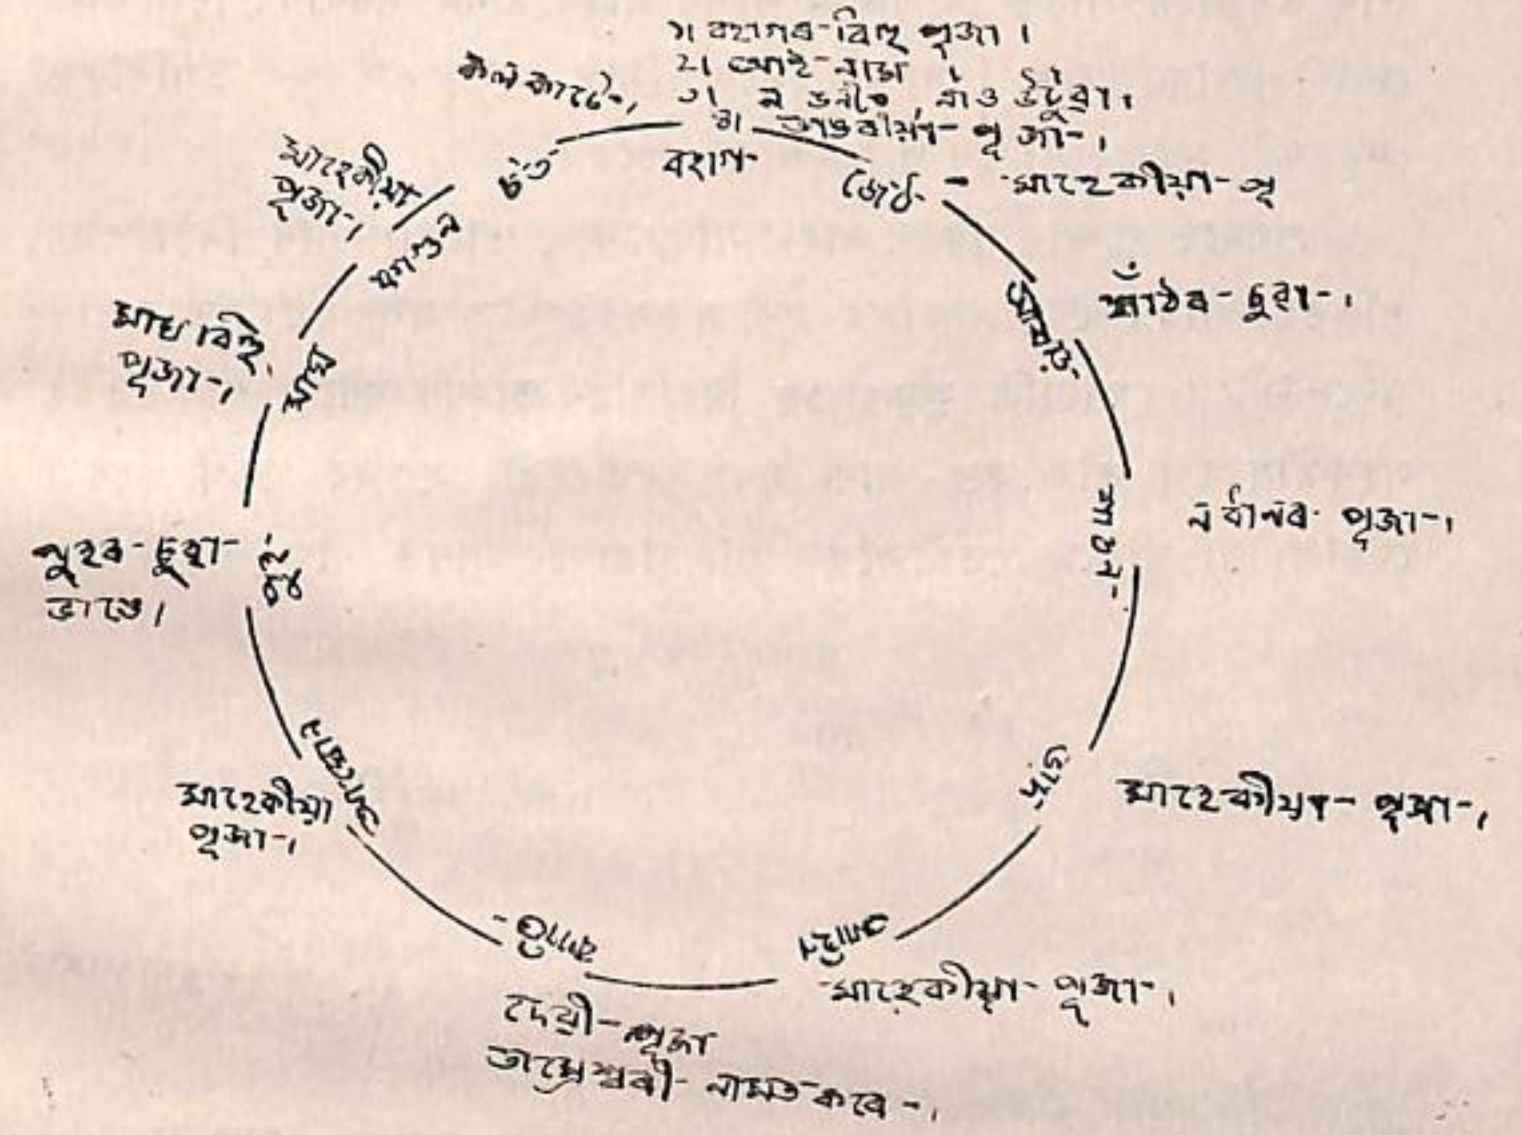 ১। বহাগৰ-বিহু পূজা।
২। আই-নাম
৩। ন ভনীত, নাঁও উটুৱা।
৪। ভাঙৰীয়া-পূজা-।
বহাগ-
জেঠ- - মাহেকীয়া-পূ
আহাৰ-
আঁঠৰ-চুৱা-।
শাওন-
নৰ্বানৰ পূজা-।
ভাদ-
মাহেকীয়া-পূজা-।
আহিন
মাহেকীয়া-পূজা-।
কাতি-
দেৱী-পূজা
তাম্ৰেশ্বৰী-নামত কৰে-।
আঘোণ
মাহেকীয়া
পূজা-।
পুহ-
পুহৰ-চুৱা-
ভাঙে।
মাঘ
মাঘ বিহু
পূজা-।
ফাগুন
মাহেকীয়া
পূজা-।
চ'ত-